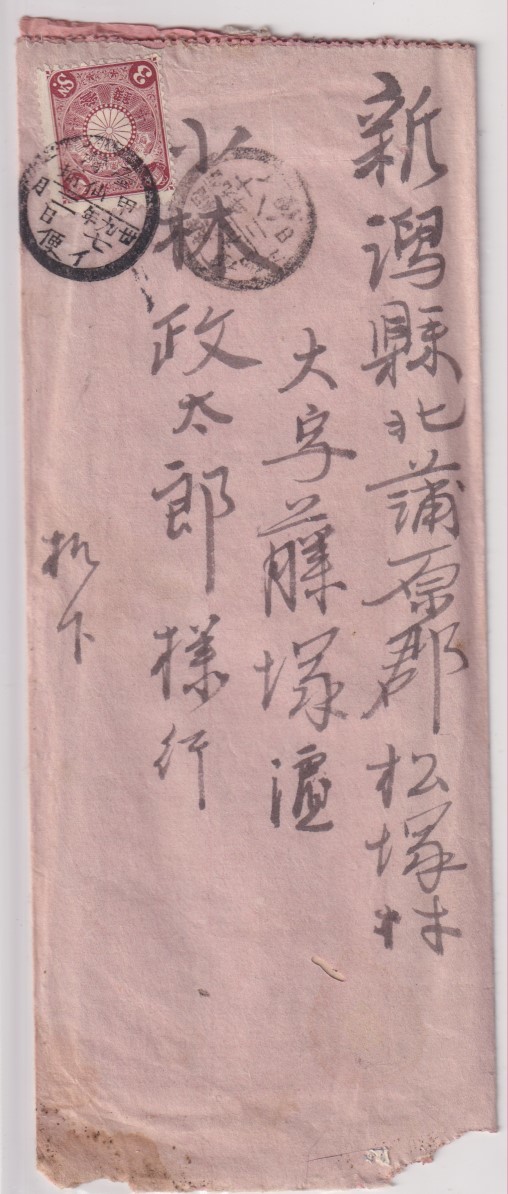 新潟縣北蒲原郡松塚村
大字藤塚濱
小林政太郎様行
机下
3 Sn